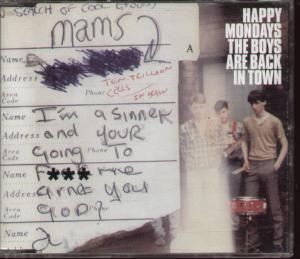 SEARCH OF COOL GROUPS
mams
A
Name
Address
TEN TRILLION
Area Code
Phone
CELLS
IN BRAIN
Name I'm a sinner
Address and YOUR
Area Code Going Phone To
Name F*** me
Address arnt you
Area Code GOD? Phone
Name
HAPPY
MONDAYS
THE BOYS
ARE BACK
IN TOWN